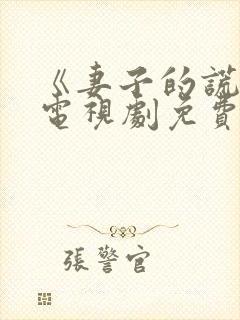 《妻子的謊
電視劇免費
張警官